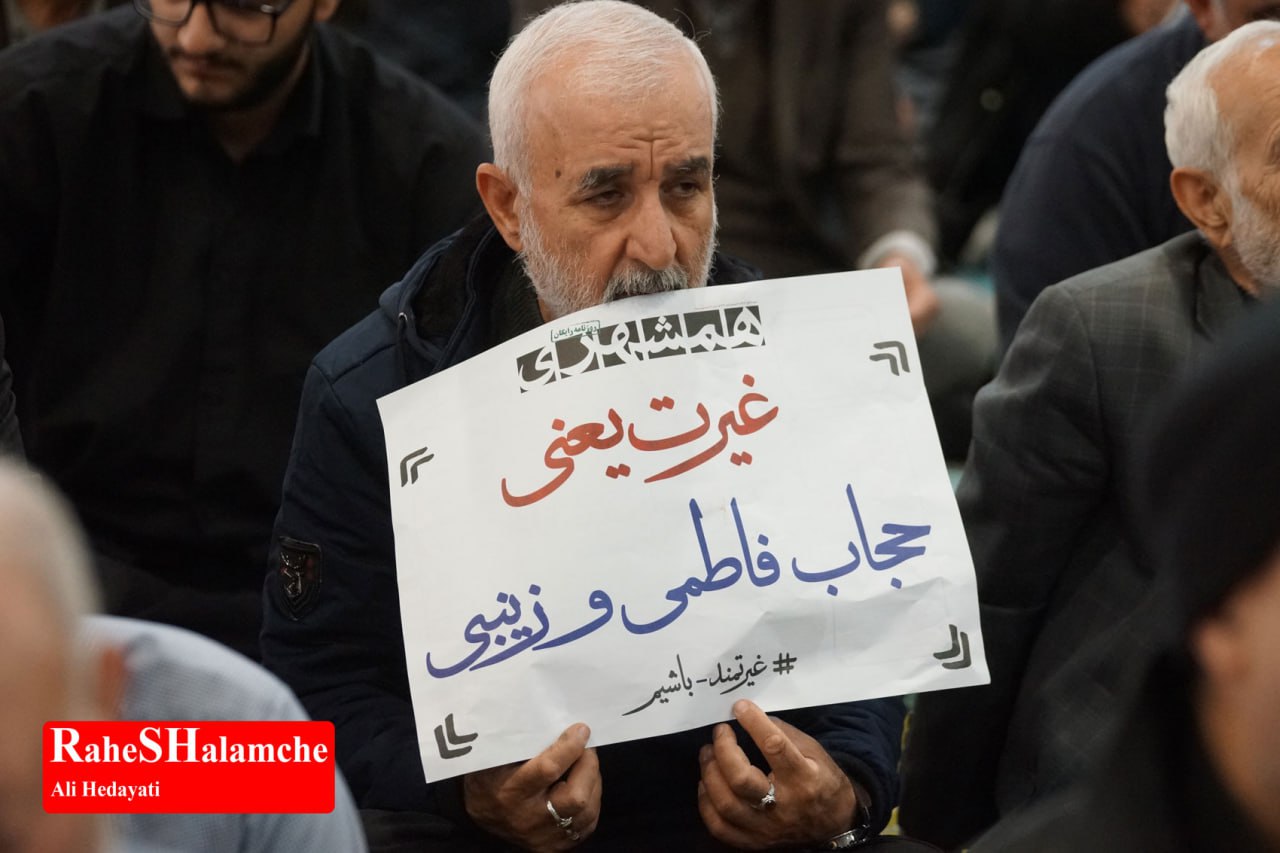 همشهری
روزنامه رایگان
غیرت یعنی
حجاب فاطمی و زینبی
#غیرتمند-باشیم
RaheSHalamche
Ali Hedayati